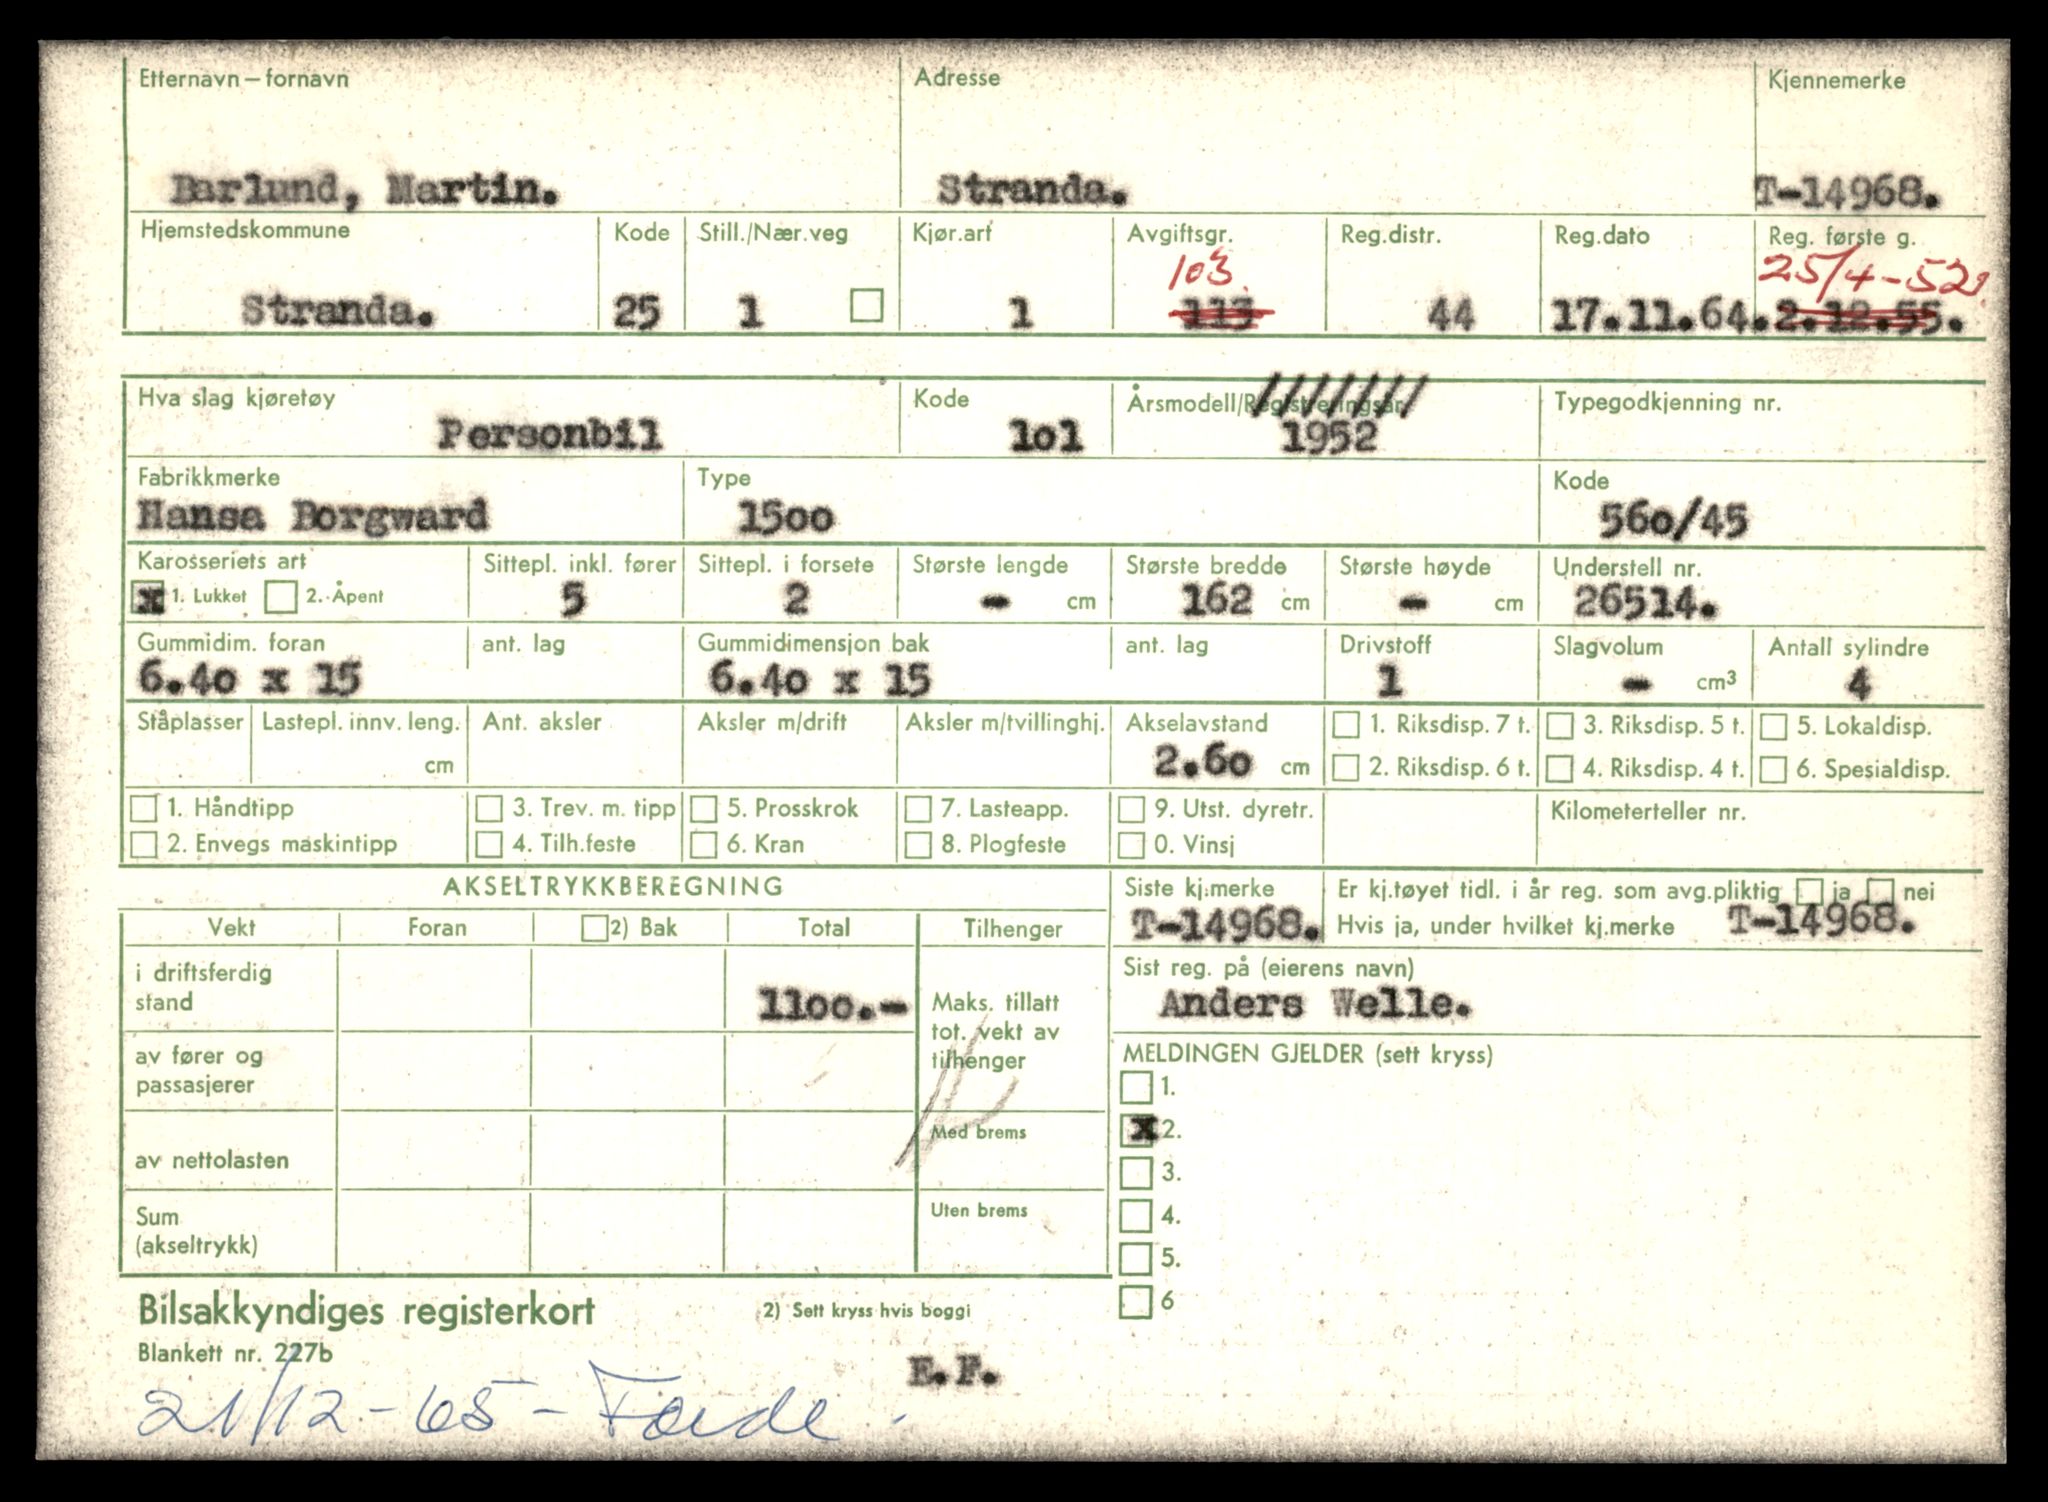 Etternavn – fornavn Adresse Kjennemerke
Barlund, Martin. Stranda. T-14968.
Hjemstedskommune Kode Still./Nær.veg Kjør.art Avgiftsgr. Reg.distr. Reg.dato Reg. første g.
103. 25/4-52
Stranda. 25 1 1 113 44 17.11.64. 2.12.55.
Hva slag kjøretøy Kode Årsmodell/Registreringsår Typegodkjenning nr.
Personbil 1o1 1952
Fabrikkmerke Type Kode
Hansa Borgward 15oo 56o/45
Karosseriets art Sittepl. inkl. fører Sittepl. i forsete Største lengde Største bredde Største høyde Understell nr.
x 1. Lukket 2. Åpent 5 2 - cm 162 cm - cm 26514.
Gummidim. foran ant. lag Gummidimensjon bak ant. lag Drivstoff Slagvolum Antall sylindre
6.4o x 15 6.4o x 15 1 - cm³ 4
Ståplasser Lastepl. innv. leng. Ant. aksler Aksler m/drift Aksler m/tvillinghj. Akselavstand 1. Riksdisp. 7 t. 3. Riksdisp. 5 t. 5. Lokaldisp.
cm 2.6o cm 2. Riksdisp. 6 t. 4. Riksdisp. 4 t. 6. Spesialdisp.
1. Håndtipp 3. Trev. m. tipp 5. Prosskrok 7. Lasteapp. 9. Utst. dyretr. Kilometerteller nr.
2. Envegs maskintipp 4. Tilh.feste 6. Kran 8. Plogfeste 0. Vinsj
AKSELTRYKKBEREGNING Siste kj.merke Er kj.tøyet tidl. i år reg. som avg.pliktig ja nei
Vekt Foran 2) Bak Total Tilhenger T-14968. Hvis ja, under hvilket kj.merke T-14968.
i driftsferdig Sist reg. på (eierens navn)
stand 11oo.- Maks. tillatt Anders Welle.
tot. vekt av
av fører og tilhenger MELDINGEN GJELDER (sett kryss)
passasjerer 1.
Med brems x 2.
av nettolasten 3.
Sum Uten brems 4.
(akseltrykk) 5.
Bilsakkyndiges registerkort 2) Sett kryss hvis boggi 6
Blankett nr. 227b
E.F.
21/12-65 - Førde.